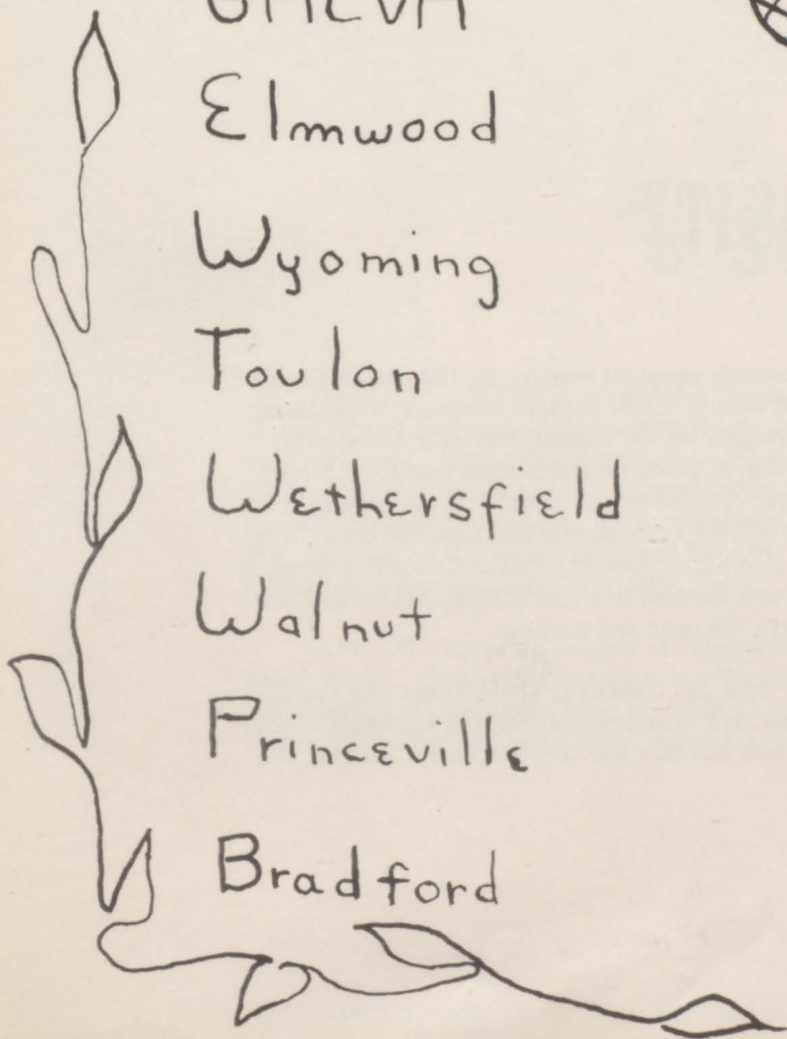 Elmwood
Wyoming
Toulon
Wethersfield
Walnut
Princeville
Bradford